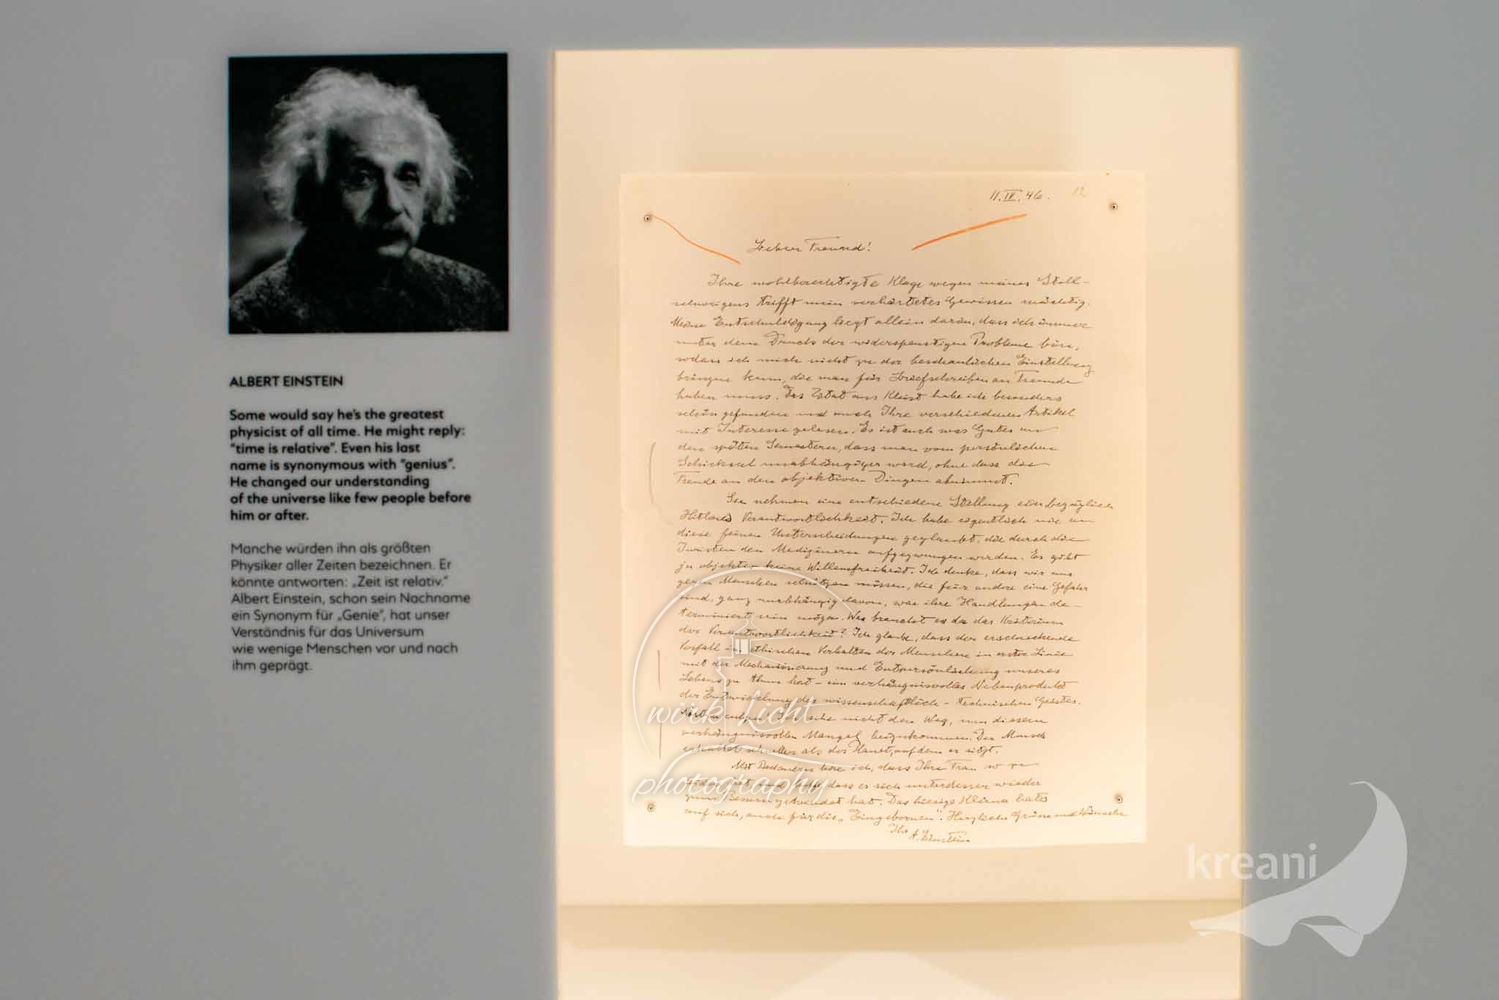 ALBERT EINSTEIN
Some would say he's the greatest
physicist of all time. He might reply:
"time is relative". Even his last
name is synonymous with "genius".
He changed our understanding
of the universe like few people before
him or after.
Manche würden ihn als größten
Physiker aller Zeiten bezeichnen. Er
könnte antworten: „Zeit ist relativ.“
Albert Einstein, schon sein Nachname
ein Synonym für „Genie“, hat unser
Verständnis für das Universum
wie wenige Menschen vor und nach
ihm geprägt.
11.IV.46. 12
Lieber Freund!
Ihre wohlberechtigte Klage wegen meines Still-
schweigens trifft mein verhärtetes Gewissen mächtig.
Meine Entschuldigung liegt allein darin, dass ich immer
unter dem Druck der widerspenstigen Probleme bin,
sodass ich mich nicht zu der beschaulichen Einstellung
bringen kann, die man für Briefschreiben an Freunde
haben muss. Das Zitat aus Kleist habe ich besonders
schön gefunden und auch Ihre verschiedenen Artikel
mit Interesse gelesen. Es ist auch was Gutes an
den späten Semestern, dass man vom persönlichen
Schicksal unabhängiger wird, ohne dass die
Freude an den objektiven Dingen abnimmt.
Sie nehmen eine entschiedene Stellung ein bezüglich
Hitlers Verantwortlichkeit. Ich habe eigentlich nie an
diese feinen Unterscheidungen geglaubt, die durch die
Juristen den Medizinern aufgezwungen werden. Es gibt
ja objektiv keine Willensfreiheit. Ich denke, dass wir uns
gegen Menschen schützen müssen, die für andre eine Gefahr
sind, ganz unabhängig davon, was ihre Handlungen de-
terminiert sein mögen. Was braucht es da das Kriterium
der Verantwortlichkeit? Ich glaube, dass der erschreckende
Verfall im ethischen Verhalten der Menschen in erster Linie
mit der Mechanisierung und Entpersönlichung unseres
Lebens zu thun hat - ein verhängnisvolles Nebenprodukt
der Entwicklung des wissenschaftlich-technischen Geistes.
Nostra culpa! Ich sehe nicht den Weg, um diesem
verhängnisvollen Mangel beizukommen. Der Mensch
erkaltet schneller als der Planet, auf dem er sitzt.
Mit Bedauern höre ich, dass Ihre Frau
dass es sich unterdessen wieder
zum Bessern gewendet hat. Das hiesige Klima hat's
auf sich, auch für die „Eingebornen“. Herzliche Grüsse und Wünsche
Ihr A. Einstein
wirk Licht
photography
kreani